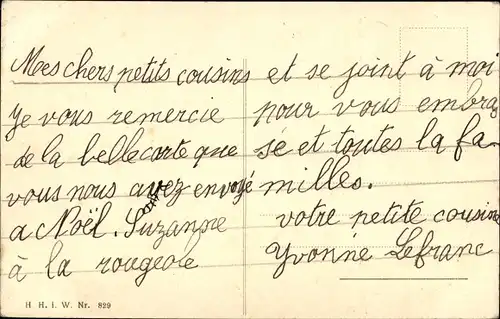 Mes chers petits cousins
Je vous remercie
de la belle carte que
vous nous avez envoyé
a Noël. Suzanne
à la rougeole
et se joint à moi
pour vous embra
sé et toutes la fa-
milles.
votre petite cousine
Yvonne Lefranc
H H. i. W. Nr. 829